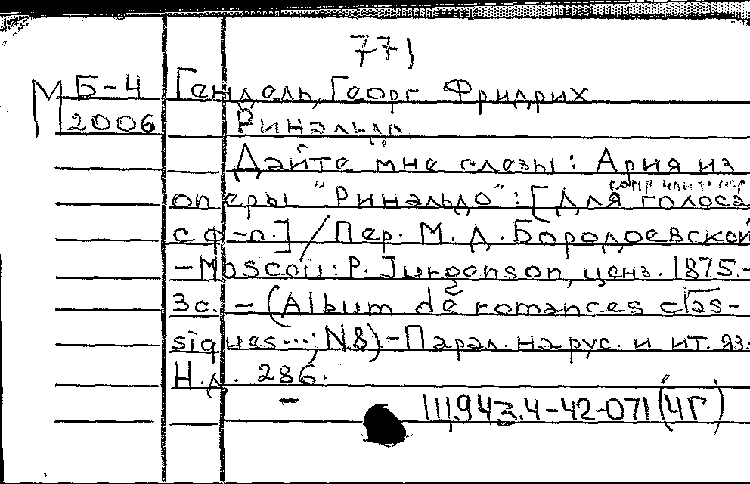 771
М Б-4 Гендель, Георг Фридрих
2006 Ринальдо.
Дайте мне слезы: Ария из
оперы "Ринальдо": [Для голоса
с ф-п.] / Пер. М. Д. Бородоевской
-Moscou: P. Jurgenson, ценз. 1875.-
3с. - (Album de romances clas-
siques...; N8) - Парал. на рус. и ит. яз.
Н.д. 286.
111943.4-42-071(4Г)